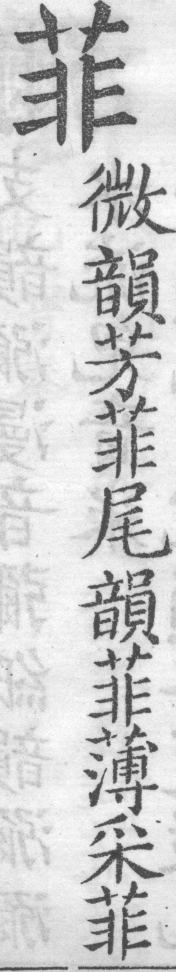 菲
微韻芳菲尾韻菲薄采菲